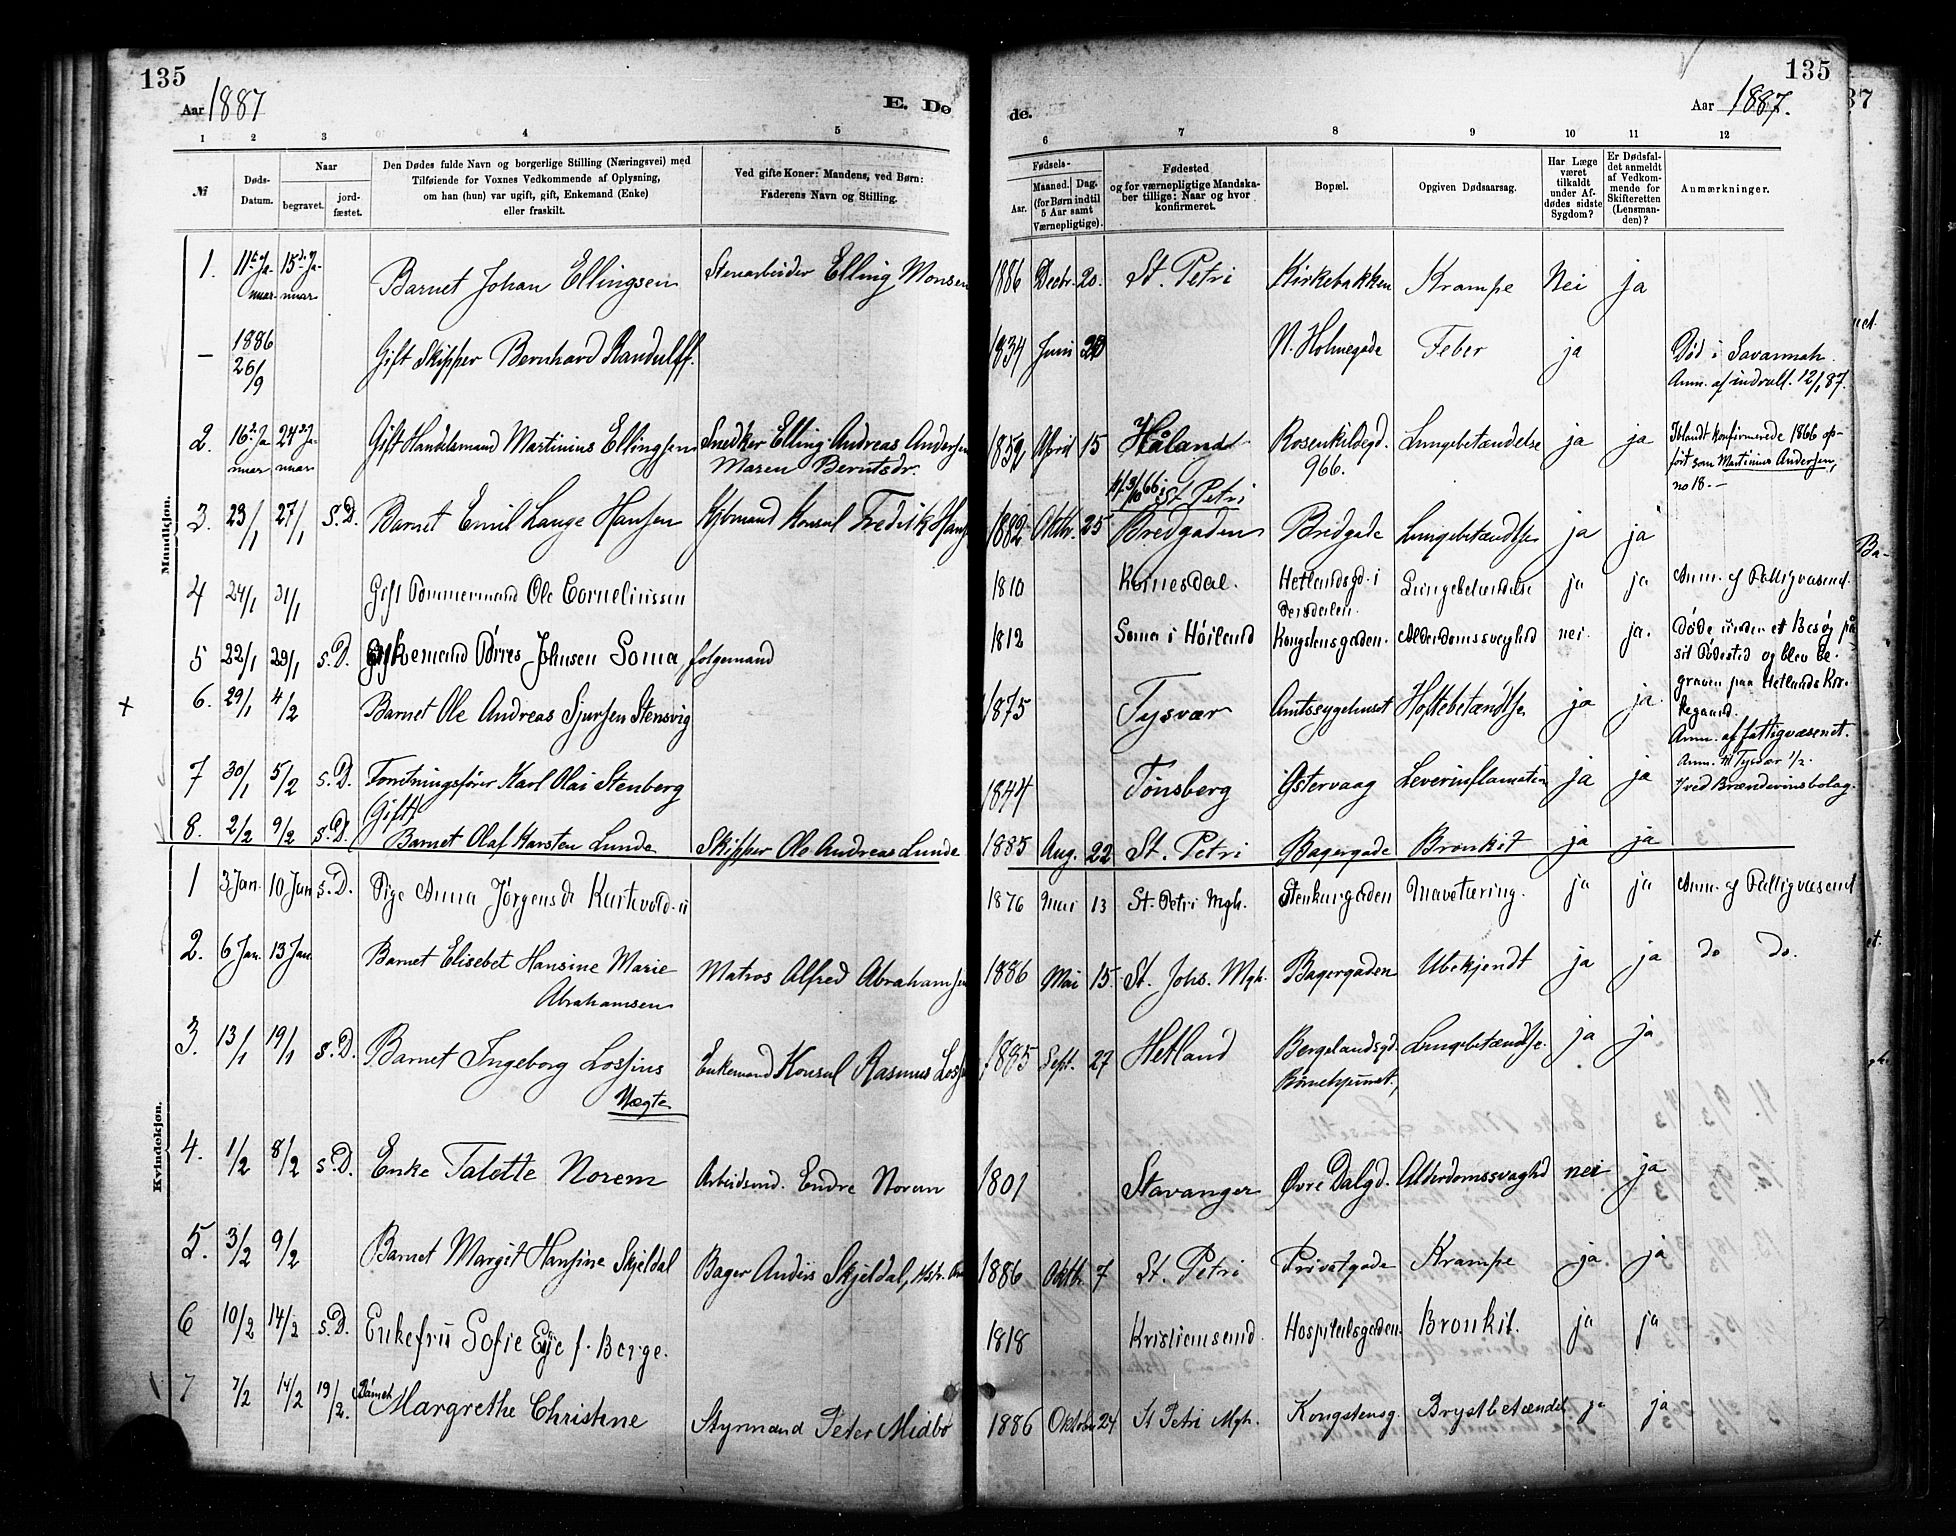 135
Aar 1887
E. Dø
de.
135
Aar 1887.
1 2 3 4 5 6 7 8 9 10 11 12
№
Døds-
Datum.
Naar
begravet.
jord-
fæstet.
Den Dødes fulde Navn og borgerlige Stilling (Næringsvei) med
Tilføiende for Voxnes Vedkommende af Oplysning,
om han (hun) var ugift, gift, Enkemand (Enke)
eller fraskilt.
Ved gifte Koner: Mandens, ved Børn:
Faderens Navn og Stilling.
Fødsels-
Aar.
Maaned.
Dag.
(for Børn indtil
5 Aar samt
Værnepligtige).
Fødested
og for værnepligtige Mandska-
ber tillige: Naar og hvor
konfirmeret.
Bopæl.
Opgiven Dødsaarsag.
Har Læge
været
tilkaldt
under Af-
dødes sidste
Sygdom?
Er Dødsfal-
det anmeldt
af Vedkom-
mende for
Skifteretten
(Lensman-
den)?
Anmærkninger.
Mandkjøn.
1. 11te Ja-
nuar 15de Ja-
nuar Barnet Johan Ellingsen Stenarbeider Elling Monsen 1886 Decbr. 20. St. Petri Kirkebakken Krampe Nei ja
— 1886
26/9 Gift Skipper Bernhard Randulff. 1834 Juni N. Holmegade Feber ja Død i Savannah.
Anm. af indvall. 12/1 87.
2. 16de Ja-
nuar 24de Ja-
nuar Gift Handelsmand Martinius Ellingsen Snedker Elling Andreas Andersen
Maren Berntsdr. 1852 April 15 Håland
66 i St. Petri Rosenkildegd.
966. Lungebetændelse ja ja Iblandt konfirmerede 1866 op-
ført som Martinius Andersen,
no 18. —
3. 23/1 27/1 s.D. Barnet Emil Lange Hansen Kjøbmand Konsul Fredrik Hansen 1882 Oktbr. 25 Bredgaden Bredgade Lungebetændelse ja ja
4 24/1 31/1 Gift Tømmermand Ole Corneliussen 1810 Kvinesdal. Hetlandsgd. i
Lungebetændelse ja ja Anm. af Fattigvæsenet
5 22/1 29/1 s.D. Enkemand Tørres Johnsen Soma, følgemand 1812 Soma i Høiland Kongstensgaden. Alderdomssvaghed nei. ja. Døde under et Besøg på
sit Fødested og blev be-
graven paa Hetlands Kir-
kegaard.
+ 6. 29/1 4/2 Barnet Ole Andreas Sjursen Stensvig 1875 Tysvær Amtssygehuset Hoftebetændelse ja ja Anm. af fattigvæsenet.
Anm. til Tysvær 1/2.
7 30/1 5/2 s.D. Forretningsfører Karl Olai Stenberg
(Gift) 1844 Tønsberg Østervaag Leverinflamation ja ja ved Brændevinsbolag.
8. 2/2 9/2 s.D. Barnet Olaf Karsten Lunde Skipper Ole Andreas Lunde 1885 Aug. 22 St. Petri Bagergade Bronkit ja ja
Kvindekjøn.
1 3 Jan. 10 Jan s.D. Pige Anna Jørgensdr. 1876 Mai 13 St. Petri Mgh. Stenkargaden Mavetæring. ja ja Anm. af Fattigvæsenet
2. 6 Jan. 13 Jan. Barnet Elisebet Hansine Marie
Abrahamsen Matros Alfred Abrahamsen 1886 Mai 15. St. Johs. Mgh. Bagergaden Ubekjendt ja ja do do.
3. 13/1 19/1 s.D. Barnet Ingeborg Lossius
Nægte Enkemand Konsul Rasmus Lossius 1885 Sept. 27 Hetland Bergelandsgd.
Børnehjemmet, Lungebetændelse. ja ja
4. 1/2 8/2 s.D. Enke Talette Norem Arbeidsmd. Endre Norem 1801 Stavanger Øvre Dalgd. Alderdomssvaghd nei ja
5. 3/2 9/2 Barnet Margit Hansine Skjeldal Bager Anders Skjeldal, 1886 Oktbr. 7 St. Petri Privatgade Krampe ja ja
6 10/2 14/2 s.D. Enkefru Sofie Eije f. Berge. 1818 Kristiansand. Hospitalsgaden. Bronkit. ja ja
7 7/2 14/2 19/2. Barnet Margrethe Christine Styrmand Peter Midbø 1886 Oktober 24 St Petri Mgh. Kongstensg. Brystbetændel ja ja